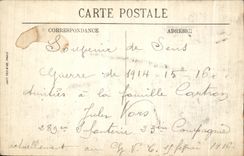 CARTE POSTALE
CORRESPONDANCE
ADRESSE
Souvenir de Sens
Guerre de 1914-15-16
Amitiés à la famille Cartron
Jules
289e Infanterie 33e Compagnie
actuellement au 1916